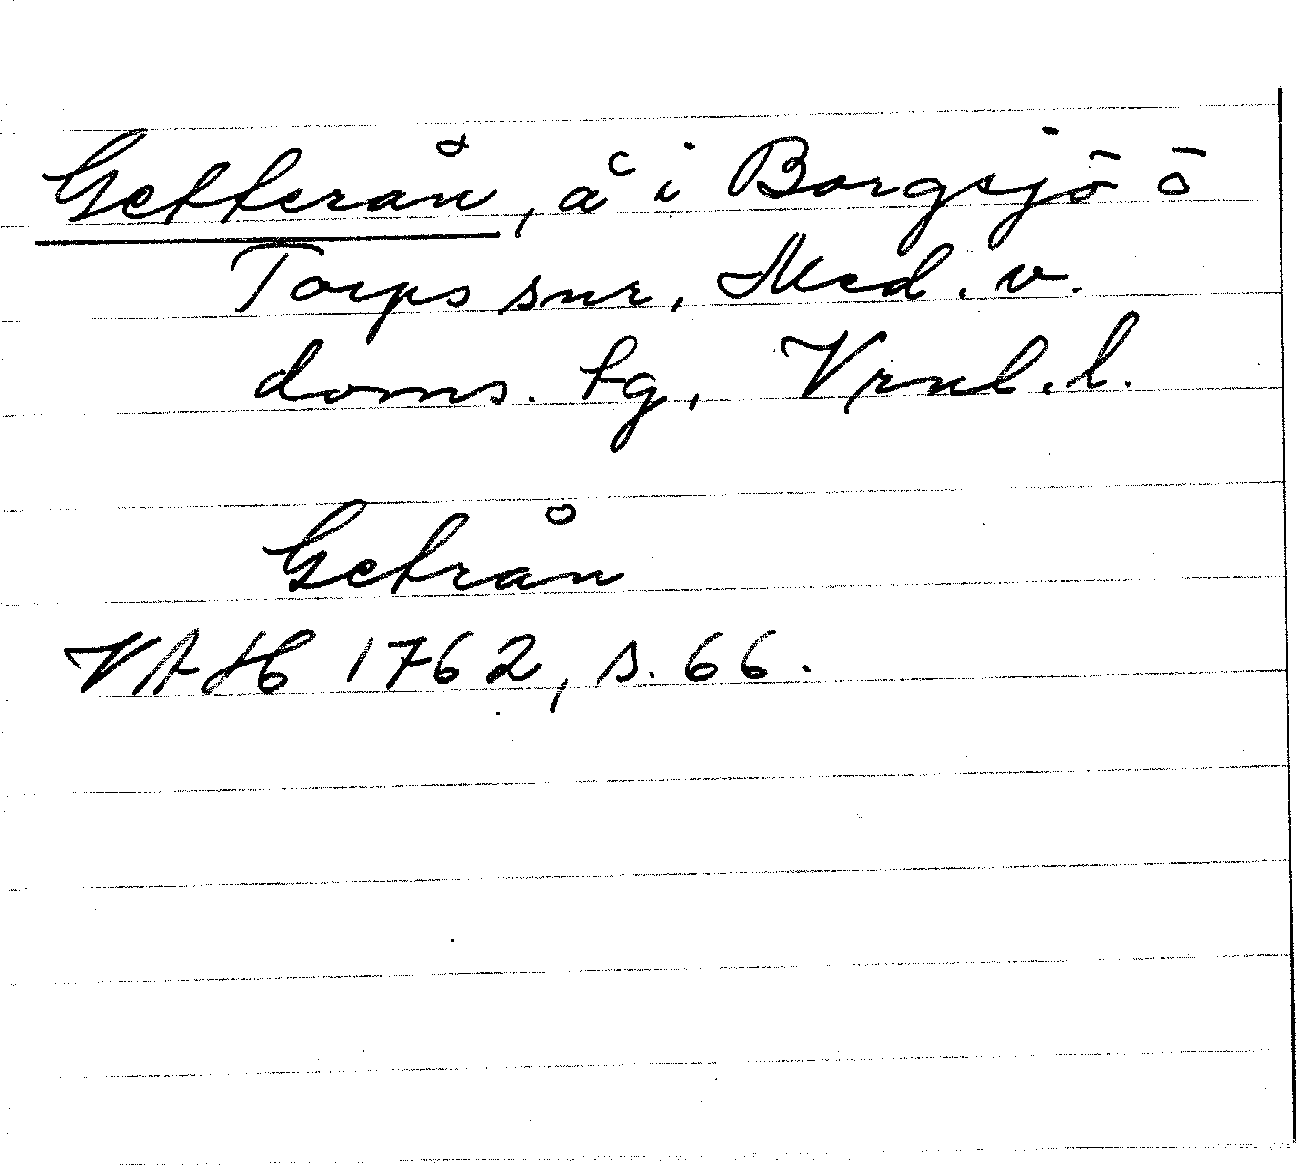 Getterån, å i Borgsjö ö
Torps snr, Med. v.
doms. tg, Vrnl. l.
Getrån
VAH 1762, s. 66.